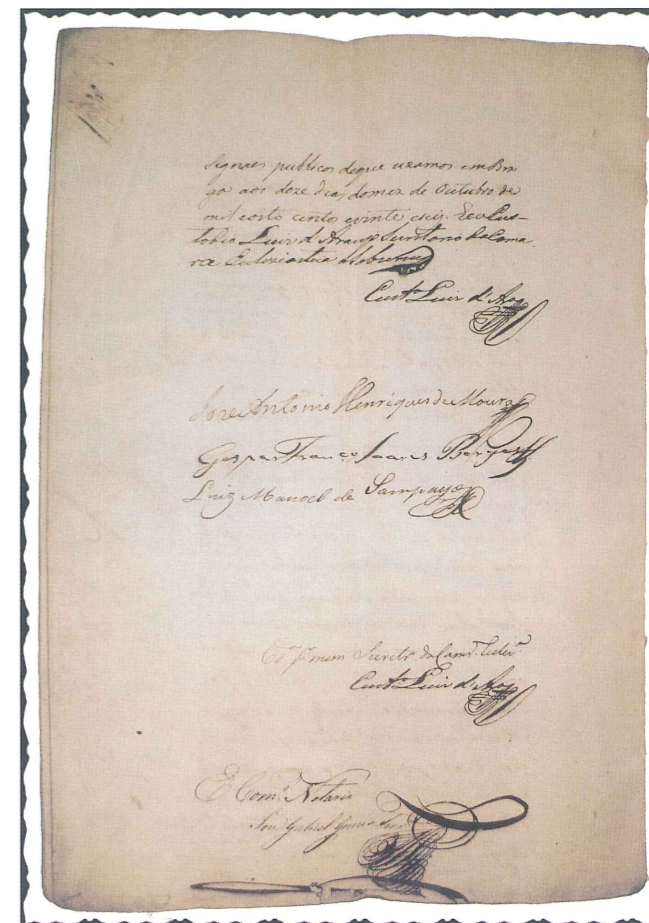 signaes publicos de que uzamos em Bra
ga aos doze dias do mez de Outubro de
mil oito cento e vinte e seis. E eu Cus-
todio Luiz d'Araujo Secretario da Cama
ra Eccleziastica o sobscrevy
Custº Luiz d'Arº
Jose Antonio Henriques de Moura
Gaspar Franco Soares Borges
Luiz Manoel de Sampayo
Secretº da Camrª
Custº Luiz d'Arº
E Comº Notario
Jose Gabriel